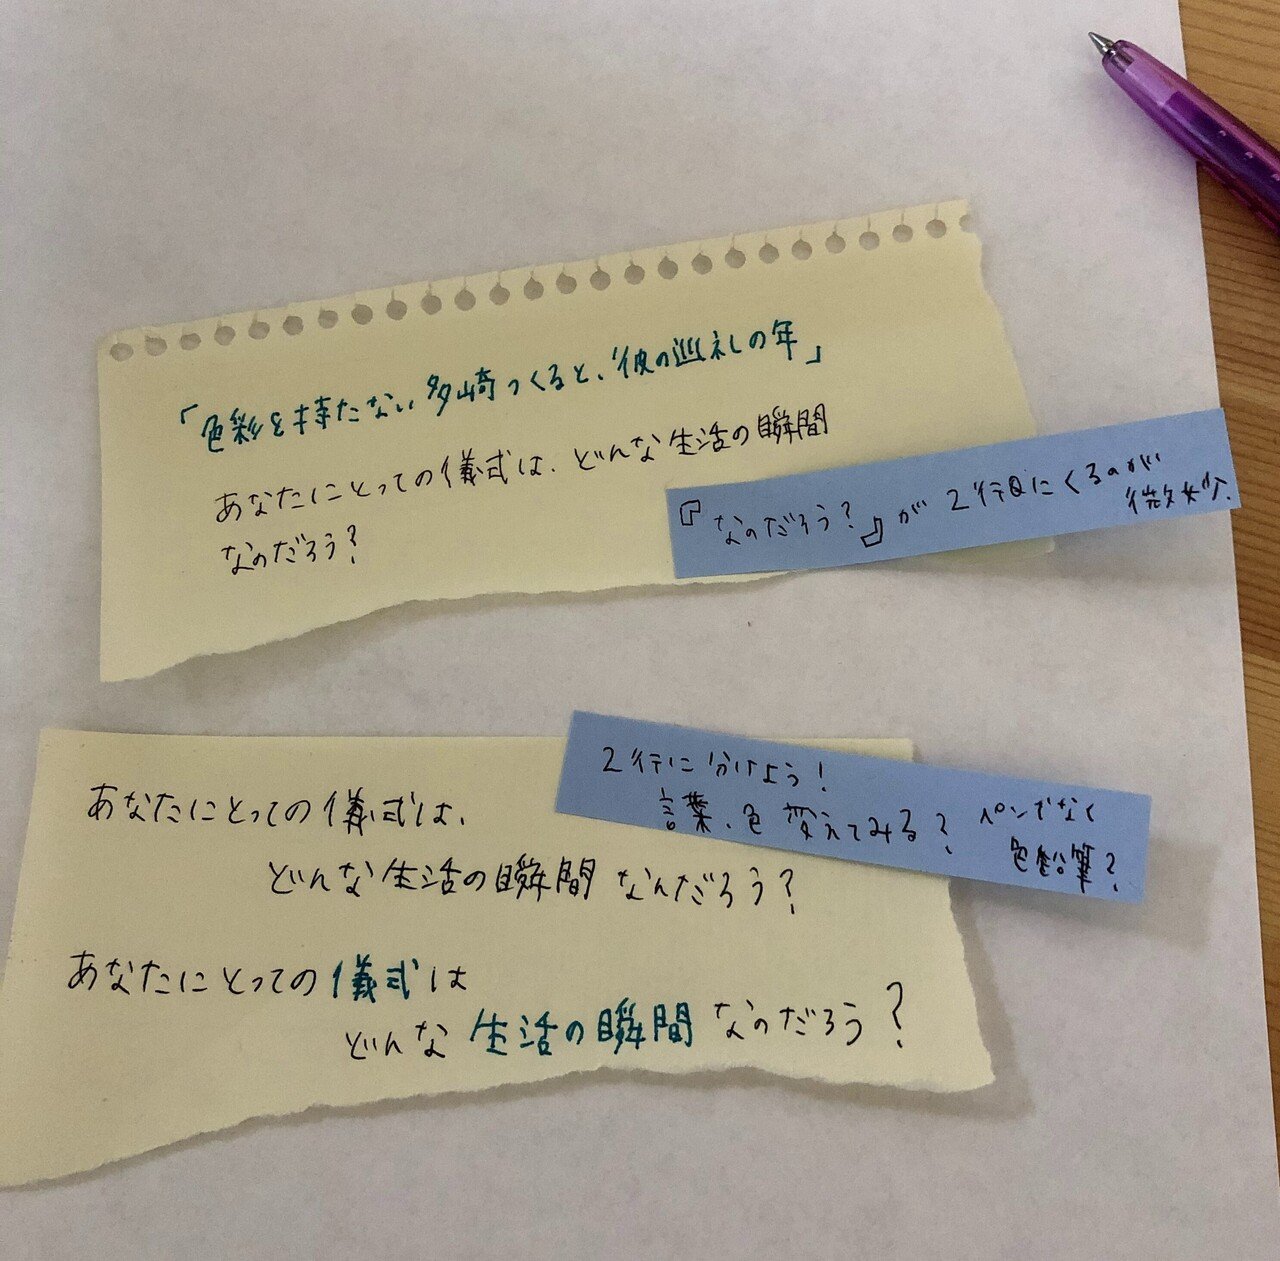 「色彩を持たない多崎つくると、彼の巡礼の年」
あなたにとっての儀式は、どんな生活の瞬間
なのだろう？
『なのだろう？』が2行目にくるのが
微妙、
2行に分けよう！
言葉、色変えてみる？ペンでなく
色鉛筆？
あなたにとっての儀式は、
どんな生活の瞬間なんだろう？
あなたにとっての儀式は
どんな生活の瞬間なのだろう？